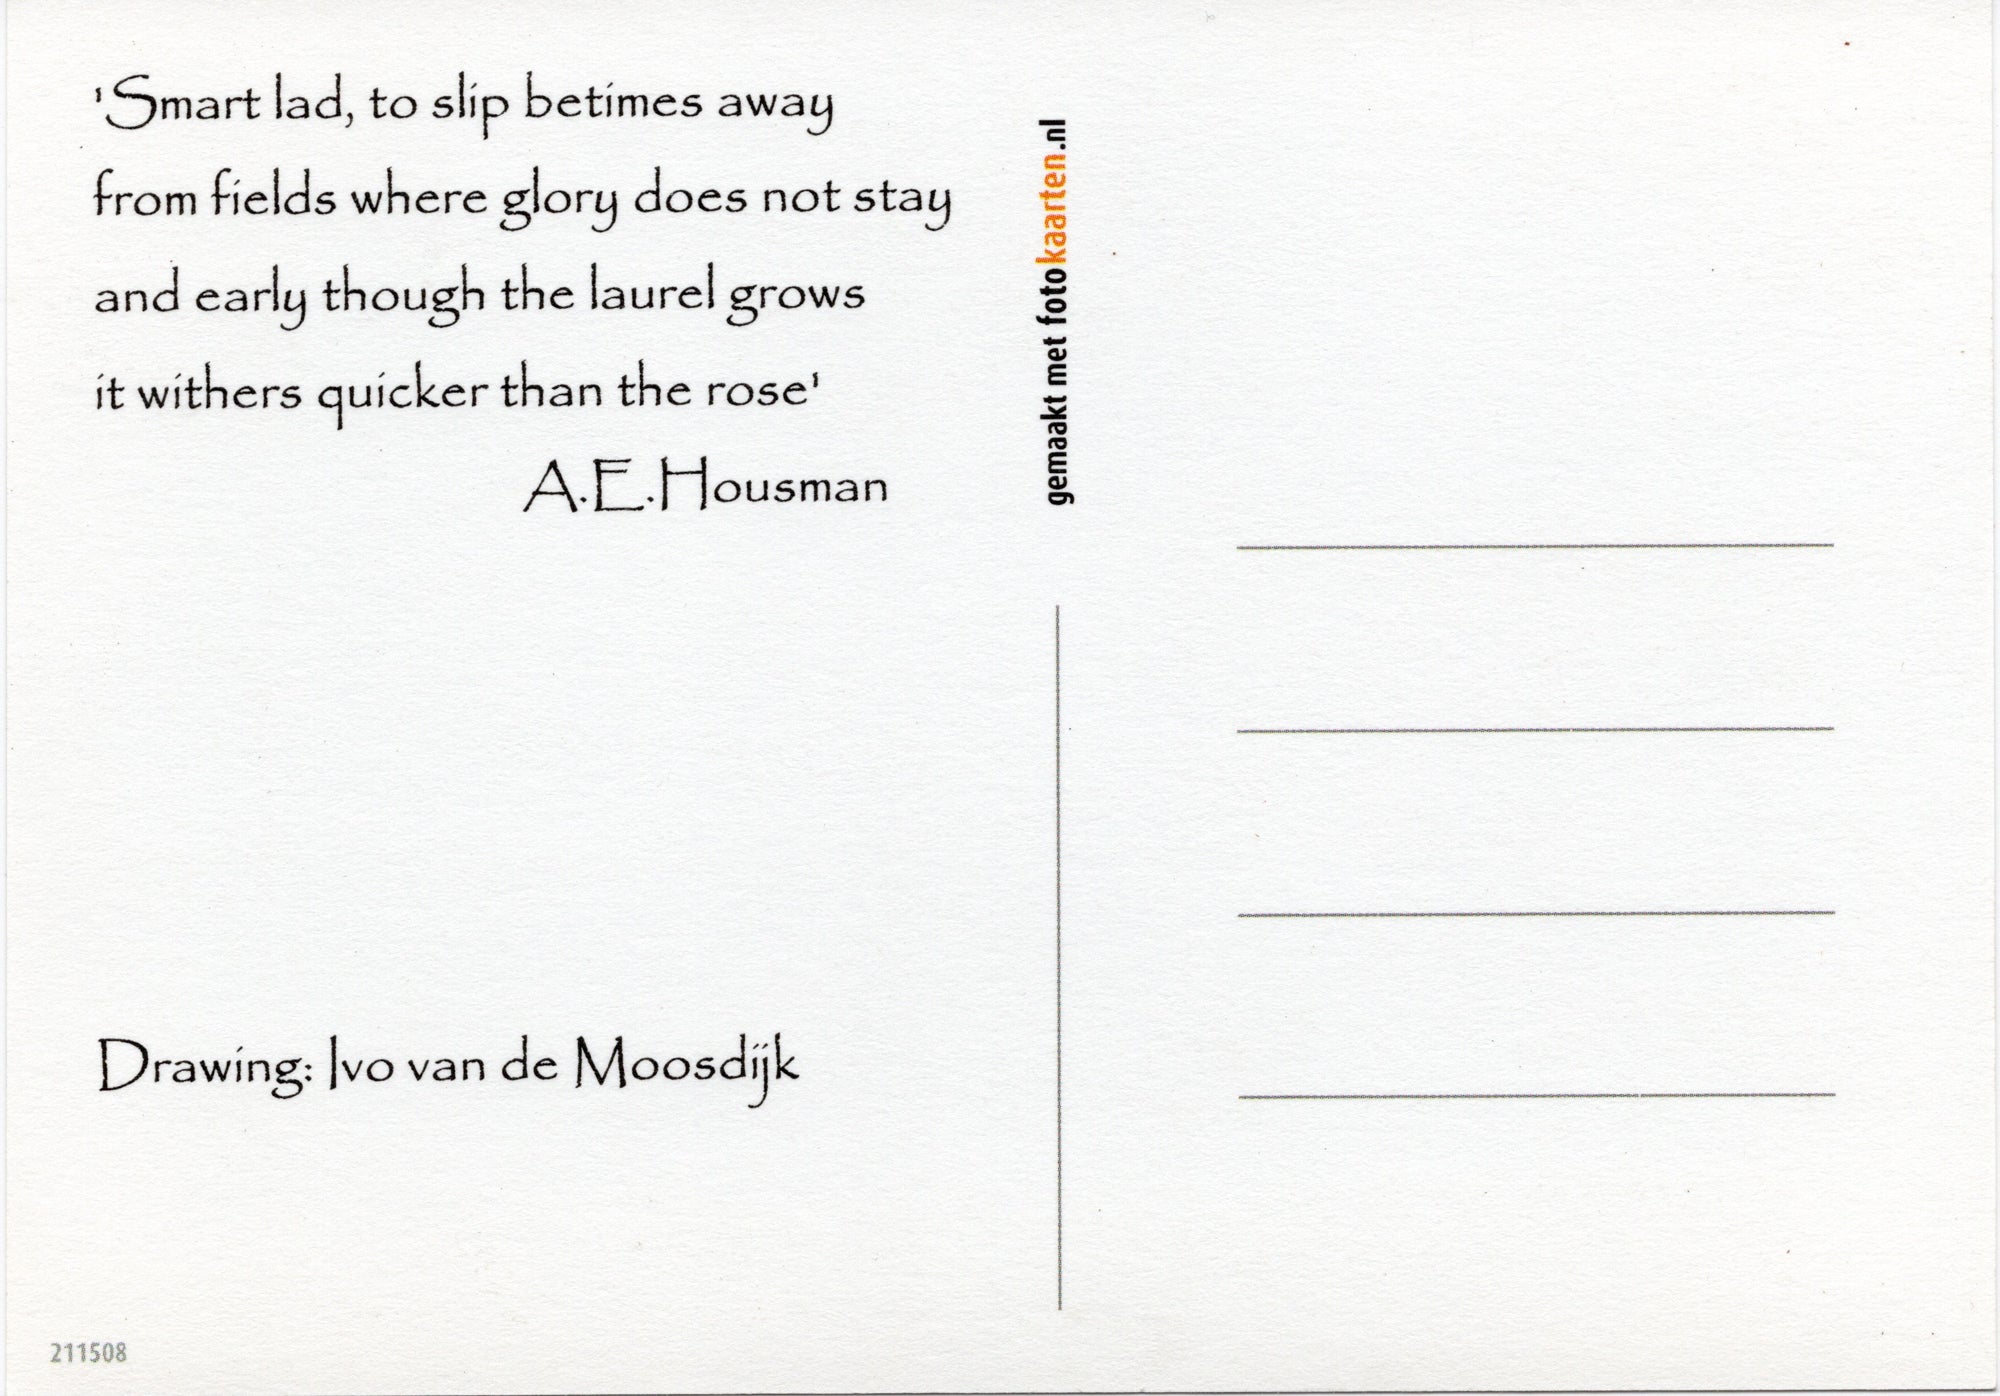 'Smart lad, to slip betimes away
from fields where glory does not stay
and early though the laurel grows
it withers quicker than the rose'
A.E.Housman
Drawing: Ivo van de Moosdijk
211508
gemaakt met fotokaarten.nl